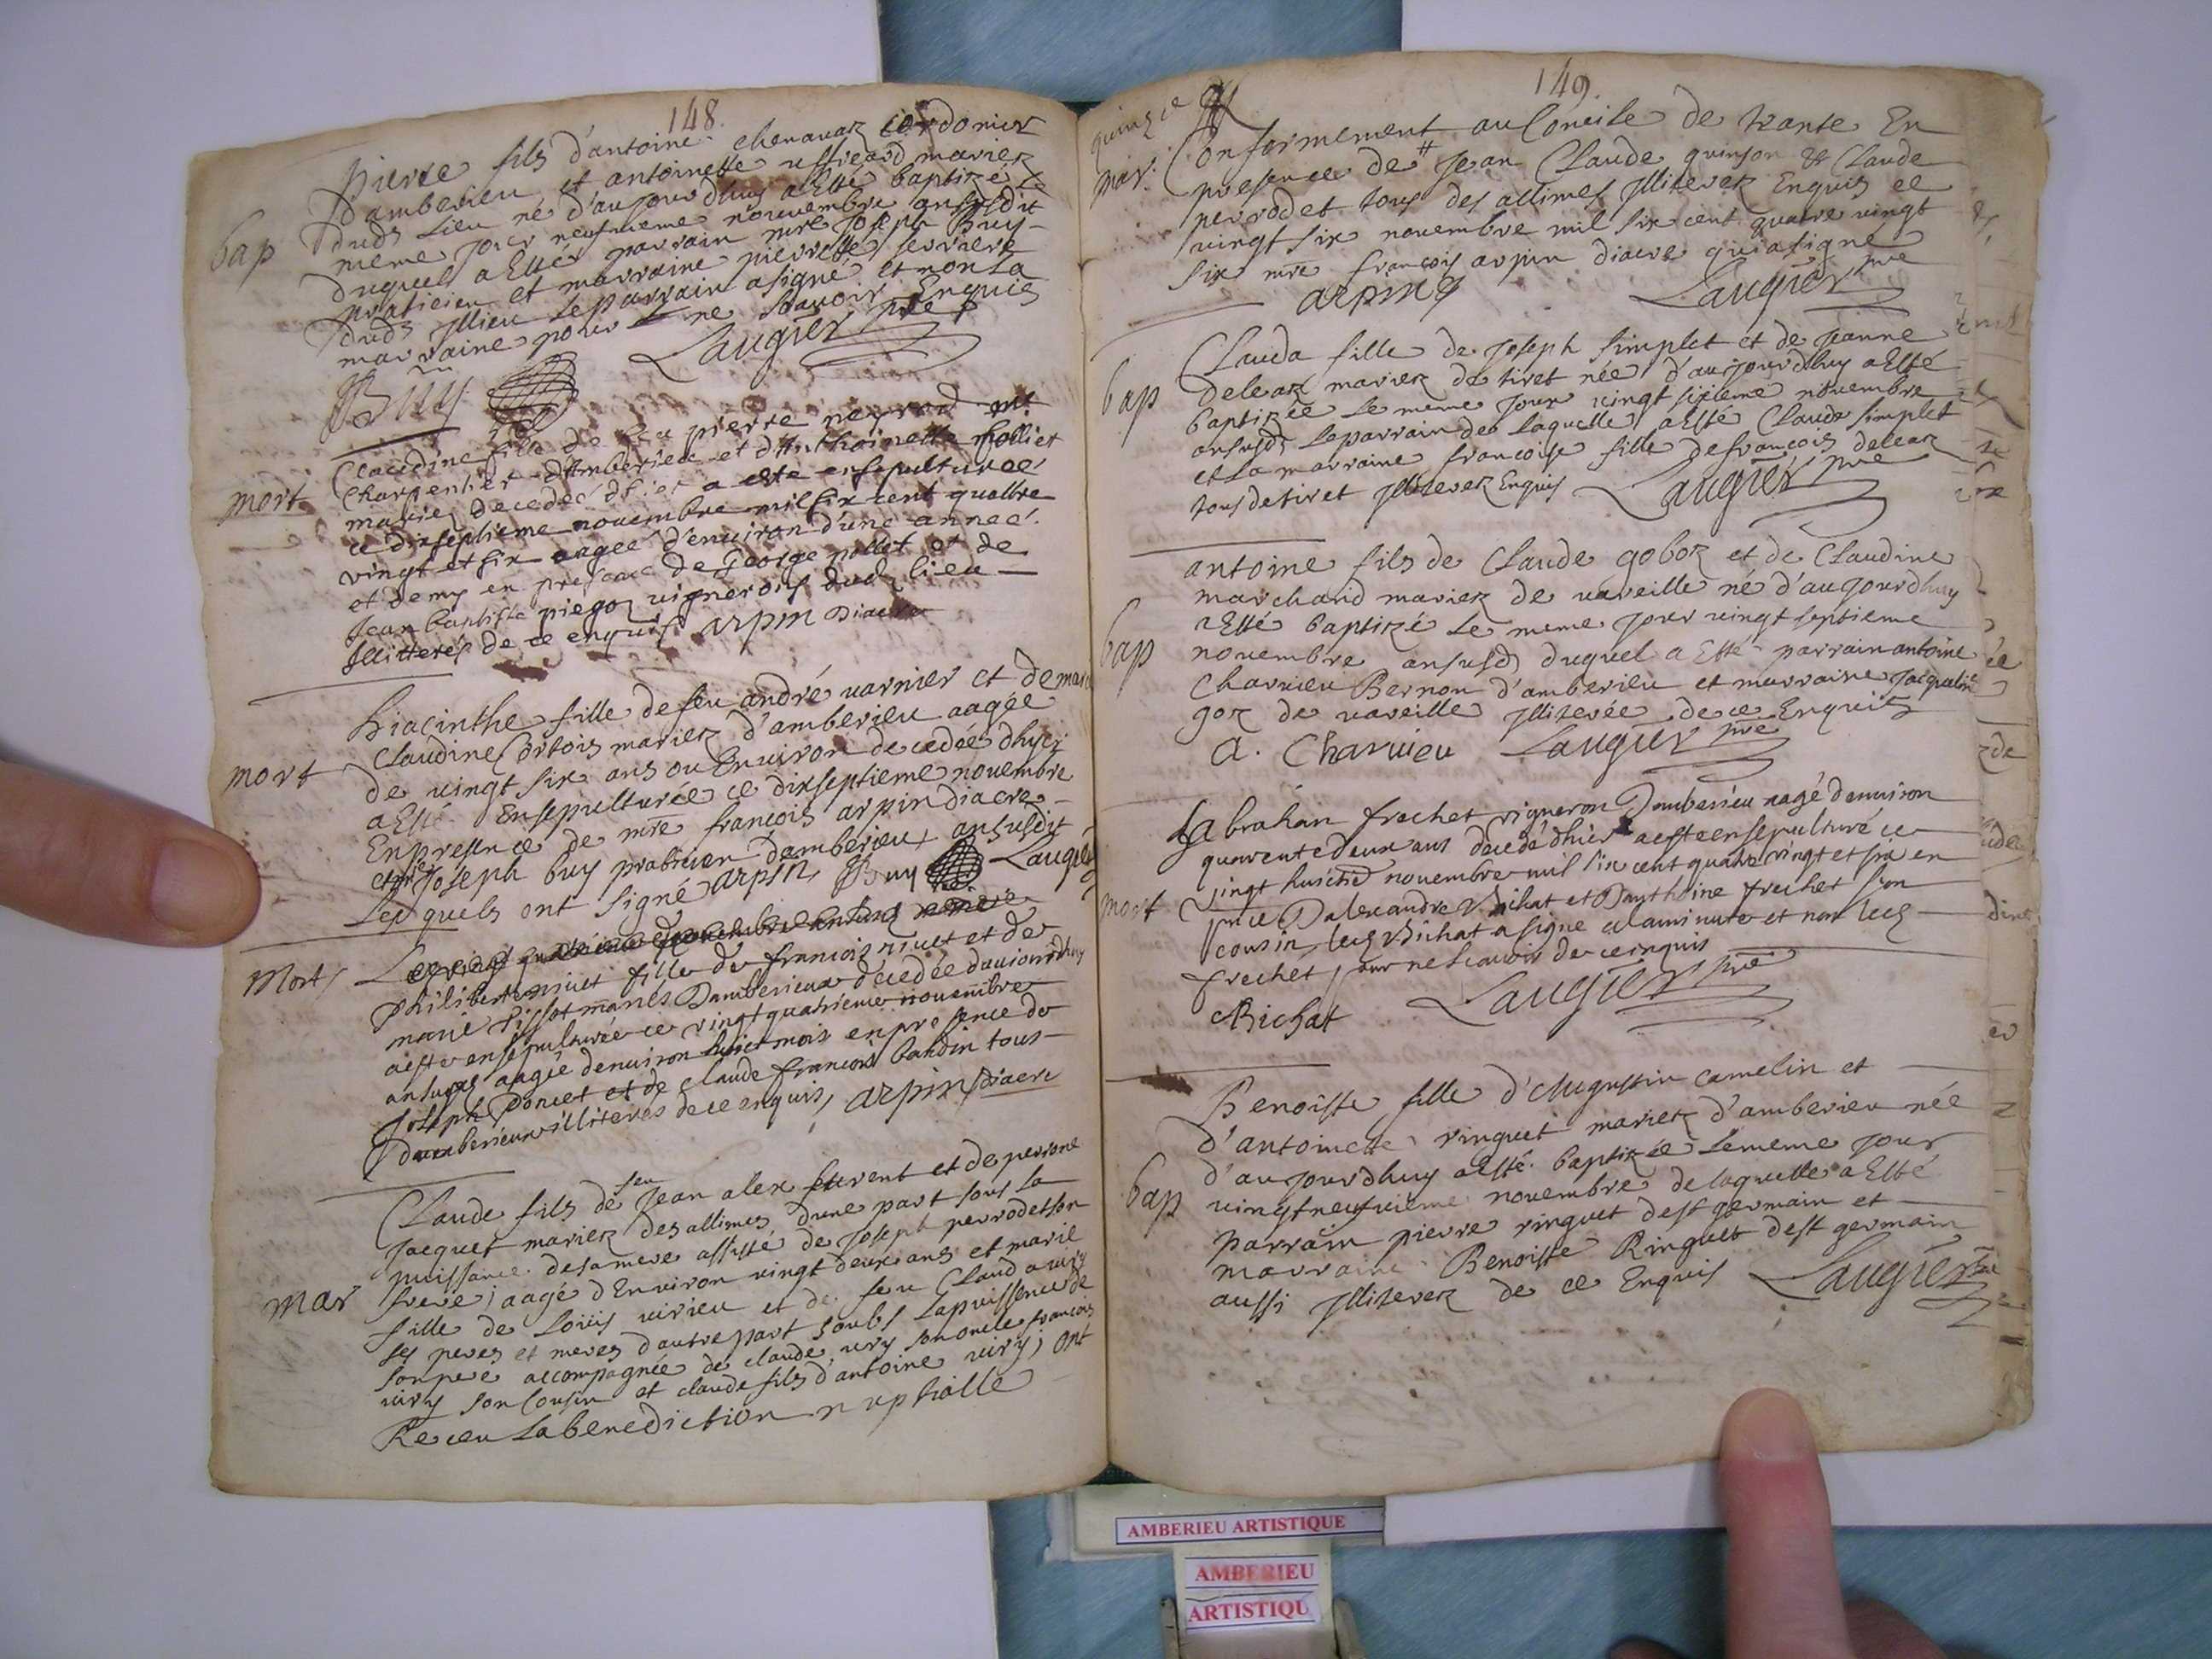 148.
bap
pierre fils d'antoine chenavaz Cordonier
d'amberieu et antoinette uffread mariez
dudt Lieu né d'aujourdhuy a Esté baptizé le
meme jour neufvieme nouvembre ansusdit
duquel a Esté parrain mre joseph Buy
praticien et marraine pierrette serriere
dudt Illieu le parrain a signé et non la
marraine pour ne scavoir Enquis
Buy Laugier pre
mort
Claudine fille de feu pierre neyrod mt
Charpentier d'Amberieu et d'Anthoinette folliet
mariez decedée dhier a esté ensepulturée
ce dixseptieme novembre mil six cent quattre
vingt et six aagée d'environ d'une année
et demy en presence de George pollet et de
Jean baptiste piegoz vignerons dudt lieu
Illitterés de ce enquis arpin Diacre
mort
hiacinthe fille de feu andré varnier et de mari
Claudine Cortois mariez d'amberieu aagée
de vingt six ans ou Environ decedée dhyer
a Esté Ensepulturée ce dixseptieme novembre
En presence de mre francois arpin diacre
et mre joseph buy praticien d'amberieu ansusdit
Lesquels ont signé arpin Buy Laugier
Mort
philiberte niuet fille de francois niuet et de
marie Pissot mariés Damberieux décedée d'auiourdhuy
a esté ensepulturée ce vingt quatrieme nouembre
ansusd aagée denuiron huict mois en presence de
Joseph Poncet et de Claude francois bardin tous
damberieux illiterés de ce enquis, arpin Diacre
mar
Claude fils de feu Jean alex et de perrone
jacquet mariez des allimes d'une part sous la
puissance de sa mere assisté de joseph perrodet son
frere, aagé d'Environ vingt deux ans et marie
fille de Loüis virieu et de feu Claud a viry
ses peres et meres d'autre part soubs La puissance de
son pere accompagnée de claude viry son oncle francois
viry son Cousin et claude fils d'antoine viry, ont
Receu La benediction nuptialle
149.
quinzce
mar:
Conformement au Concile de trante En
presence de # jean Claude quinson et Claude
perrodet tous des allimes Illiterez Enquis ce
vingt six novembre mil six cent quatre vingt
six mre francois arpin diacre qui a signé
arpin Laugier pre
bap
Clauda fille de joseph simplet et de jeanne
deleaz mariez de tiret née d'aujourdhuy a Esté
baptizée le meme jour vingt sixieme novembre
ansusdt le parrain de laquelle a Esté Claude simplet
et La marraine francoise fille de francois deleaz
tous de tiret Illiterez Enquis Laugier pre
bap
antoine fils de Claude goboz et de Claudine
marchand mariez de vareille né d'aujourdhuy
a Esté baptizé le meme jour vingt septieme
novembre ansusdt duquel a Esté parrain antoine
Charvieu Bernon d'amberieu et marraine jacqueline
goz de vareille Illiterée de ce Enquis
a. Charvieu Laugier pre
mort
abrahan frechet vigneron Damberieu aagé denuiron
quarente deux ans decedé dhier a esté ensepulturé ce
vingt huictie nouembre mil six cent quatre vingt et six en
pnce Dalexandre Bichat et Danthoine frechet son
cousin, led Bichat a signé a la minute et non led
frechet, pour ne scauoir de ce enquis
Bichat Laugier pre
bap
Benoiste fille d'Augustin camelin et
d'antoinette ringuet mariez d'amberieu née
d'aujourdhuy a Esté baptizée le meme jour
vingt neufvieme novembre de laquelle a Esté
parrain pierre ringuet de st germain et
marraine Benoiste Ringuet de st germain
aussi Illiterez de ce Enquis Laugier pre
AMBERIEU ARTISTIQUE
AMBERIEU
ARTISTIQU